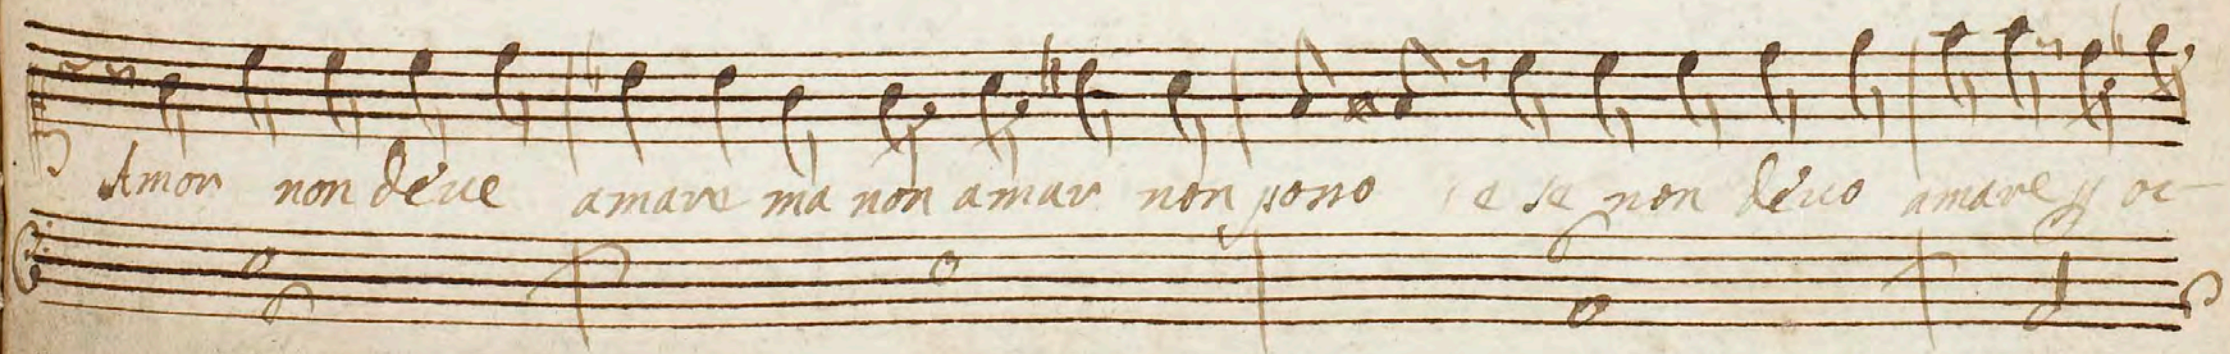 Amor non deue amare ma non amar non posso e se non deuo amare y oc-